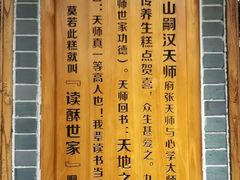 山嗣汉天师府张天师与心学大师
传养生糕点贺喜，众生甚爱之。九
师世家功德）。天师回书：天地之
言：天师真一等高人也！我辈读书当
莫若此糕就叫『读酥世家』